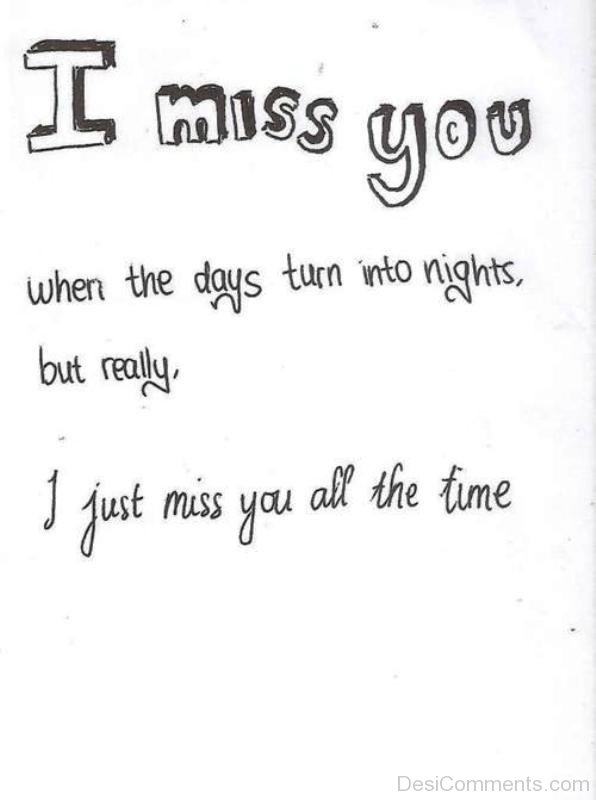 I miss you
when the days turn into nights,
but really,
I just miss you all the time
DesiComments.com